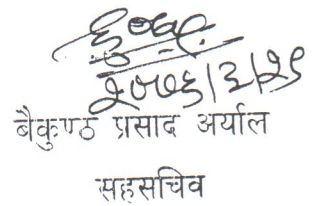 २०७६।३।२९
बैकुण्ठ प्रसाद अर्याल
सहसचिव